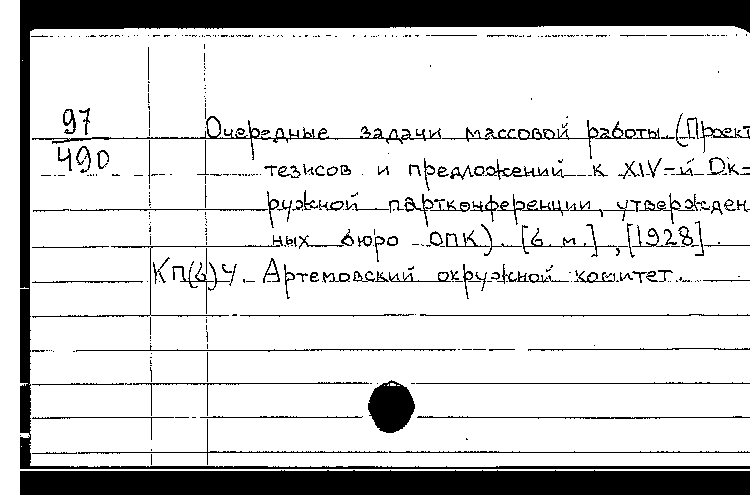 97
490
Очередные задачи массовой работы (Проект
тезисов и предложений к XIV-й Ок-
ружной партконференции, утвержден
ных бюро ОПК). [б. м.], [1928].
КП(б)У. Артемовский окружной комитет.